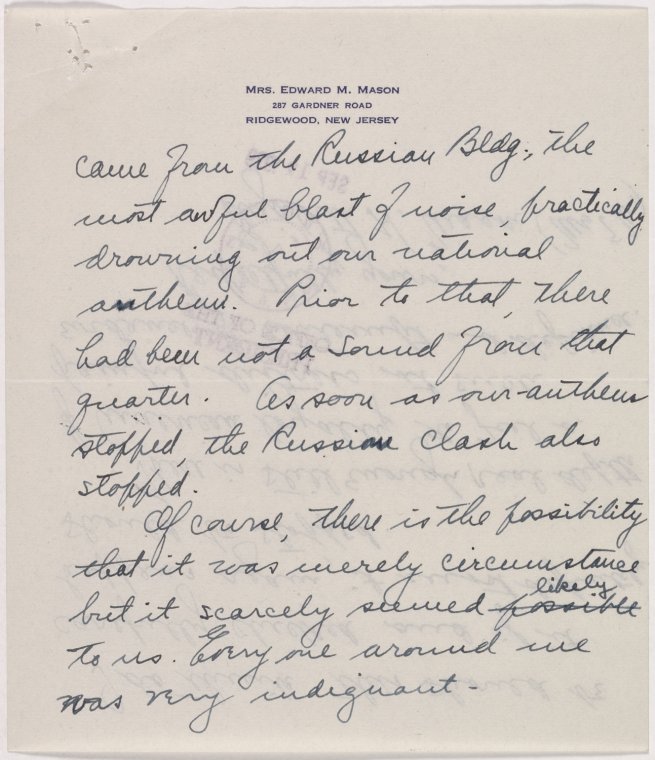 MRS. EDWARD M. MASON
287 GARDNER ROAD
RIDGEWOOD, NEW JERSEY
came from the Russian Bldg., the
most awful blast of noise, practically
drowning out our national
anthem. Prior to that, there
had been not a sound from that
quarter. As soon as our anthem
stopped, the Russian clash also
stopped.
Of course, there is the possibility
that it was merely circumstance
likely
but it scarcely seemed possible
to us. Every one around me
was very indignant -